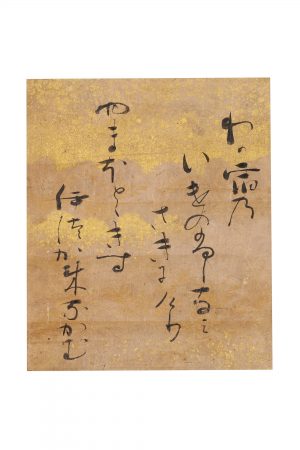 わか宿乃
いけのふしなミ
さきにけり
やまほとゝきす
伊徒か来なかむ